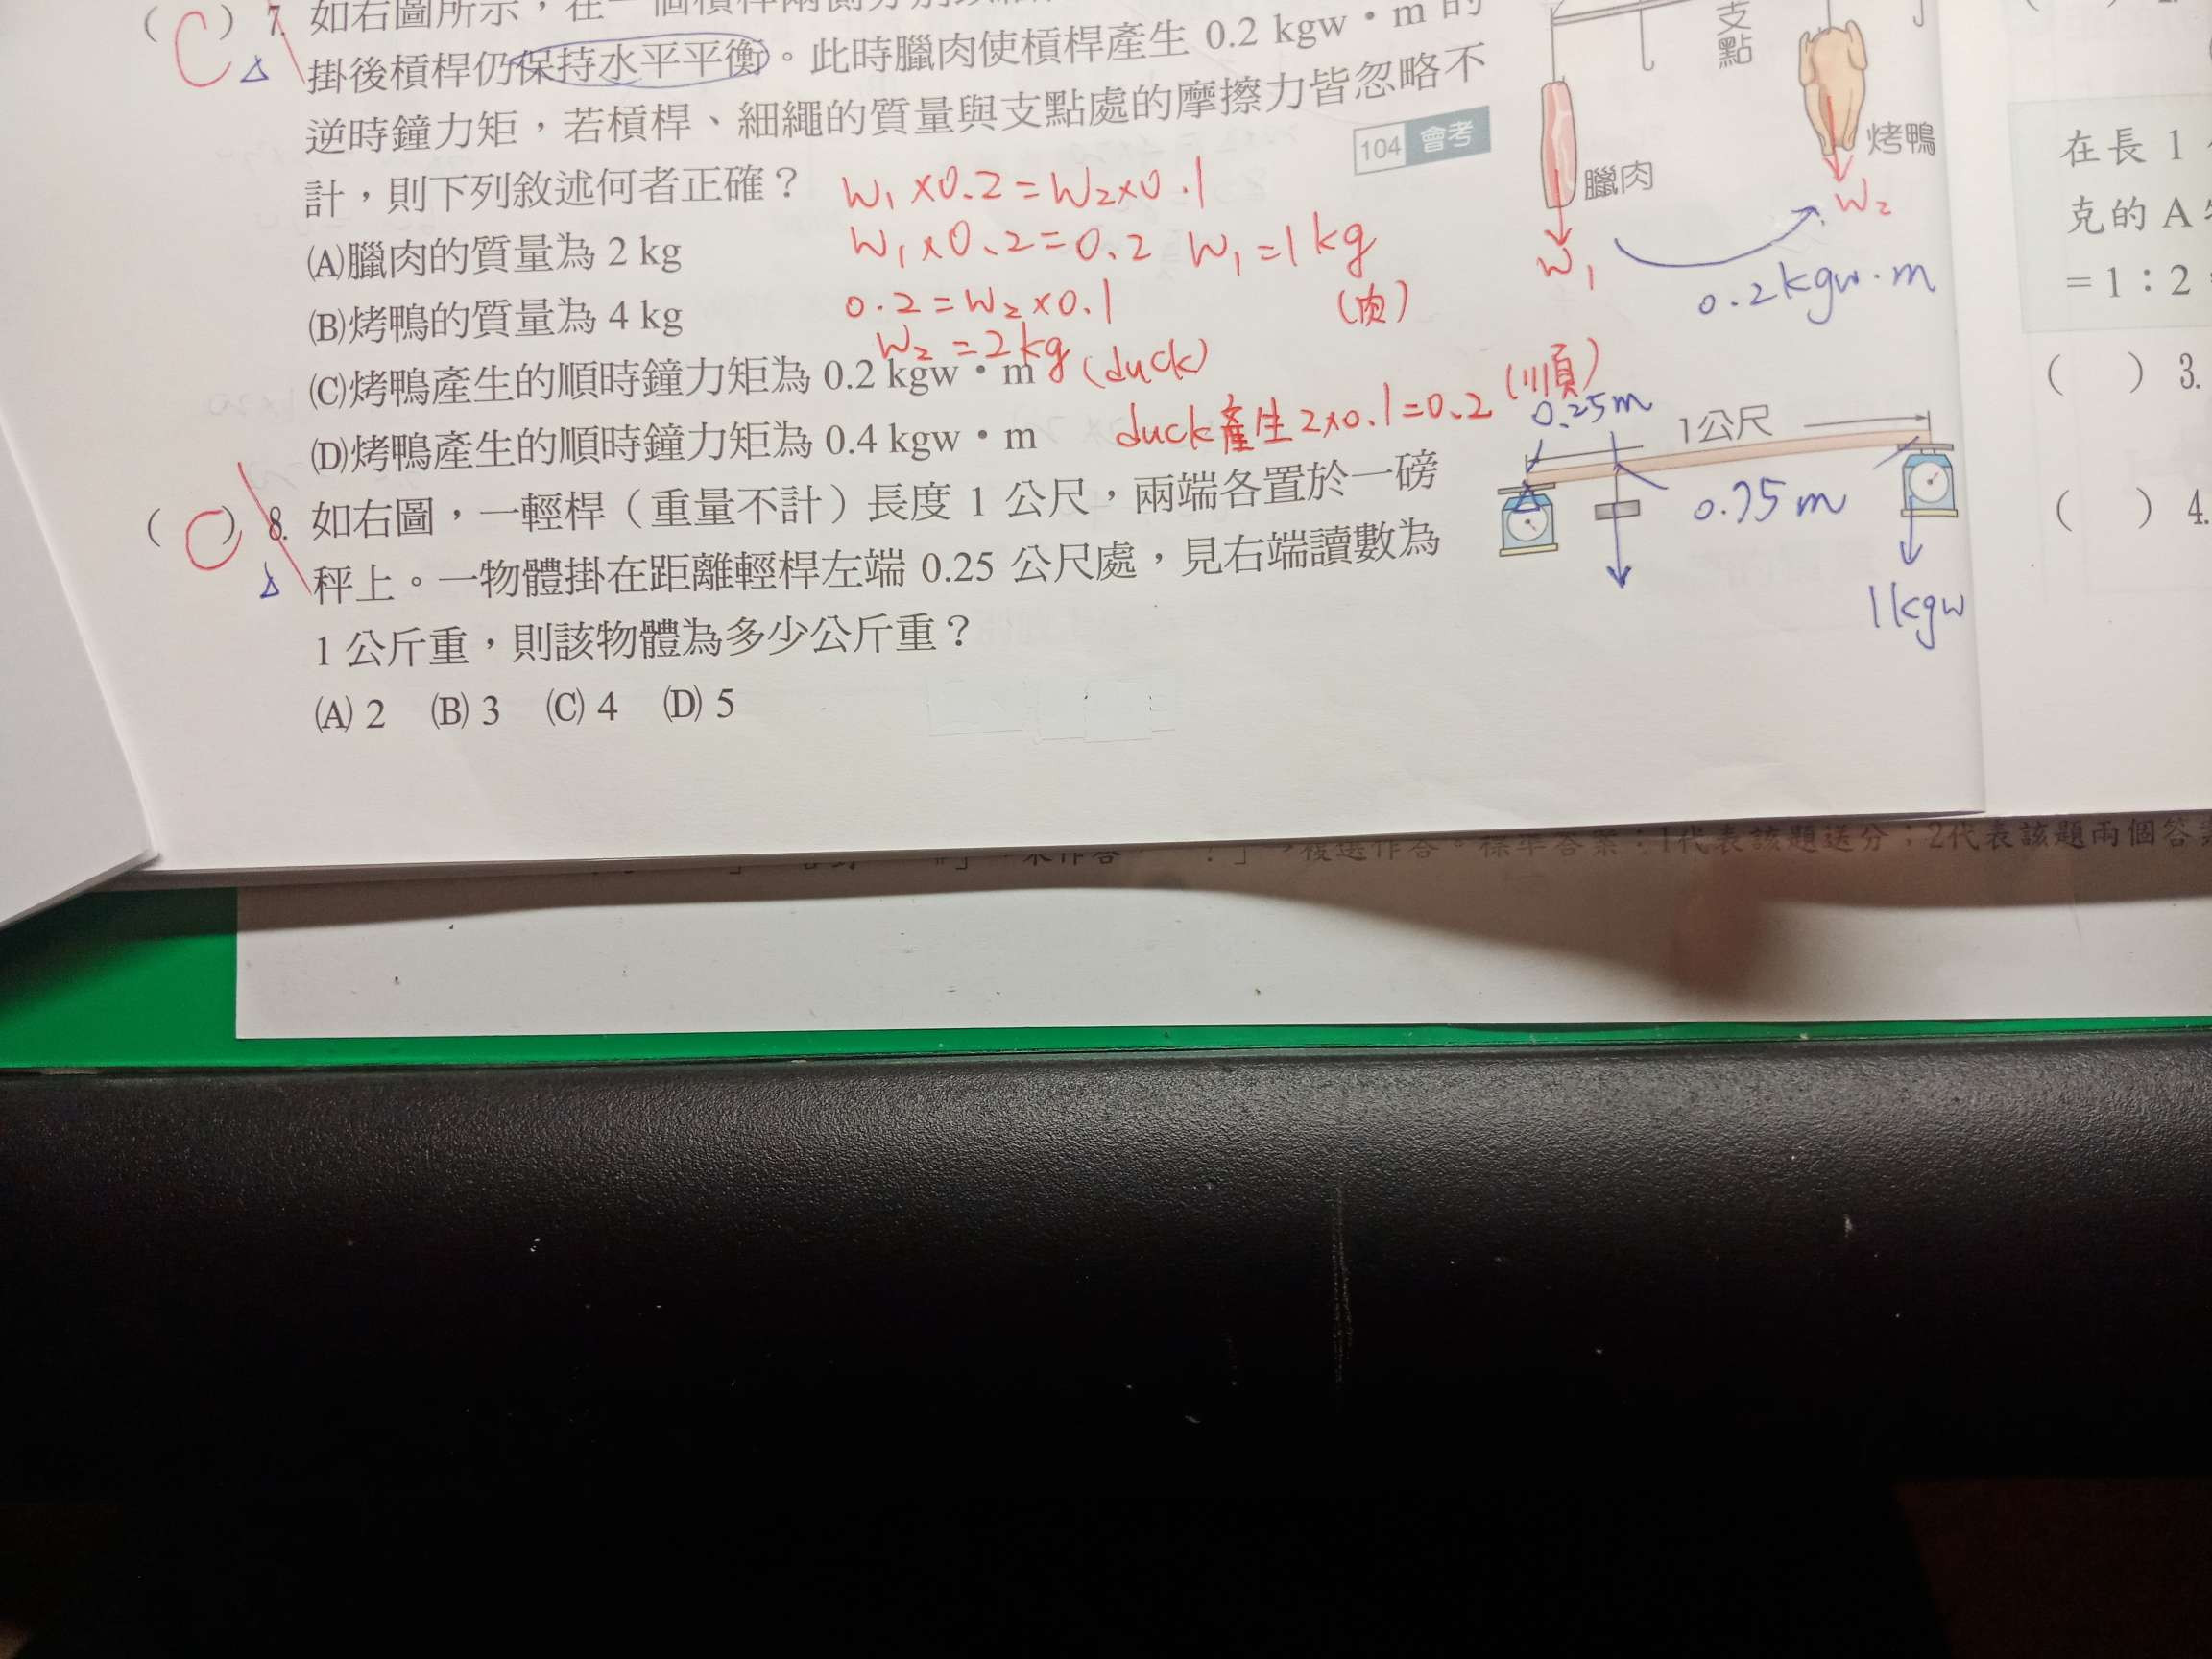 ( C ) 7. 如右圖所示，在一個槓桿兩側分別以
掛後槓桿仍保持水平平衡。此時臘肉使槓桿產生 0.2 kgw・m 的
逆時鐘力矩，若槓桿、細繩的質量與支點處的摩擦力皆忽略不
計，則下列敘述何者正確？
104 會考
(A)臘肉的質量為 2 kg
(B)烤鴨的質量為 4 kg
(C)烤鴨產生的順時鐘力矩為 0.2 kgw・m
(D)烤鴨產生的順時鐘力矩為 0.4 kgw・m
W₁×0.2=W₂×0.1
W₁×0.2=0.2 W₁=1kg
(肉)
0.2=W₂×0.1
W₂=2kg (duck)
duck產生2×0.1=0.2 (順)
支點
臘肉
烤鴨
W₁
W₂
0.2kgw·m
( ) 8. 如右圖，一輕桿（重量不計）長度 1 公尺，兩端各置於一磅
秤上。一物體掛在距離輕桿左端 0.25 公尺處，見右端讀數為
1 公斤重，則該物體為多少公斤重？
(A) 2 (B) 3 (C) 4 (D) 5
0.25m
1公尺
0.75m
1kgw
在長 1
克的 A
=1：2
( ) 3.
( ) 4.
複選作答。標準答案：1代表該題送分；2代表該題兩個答